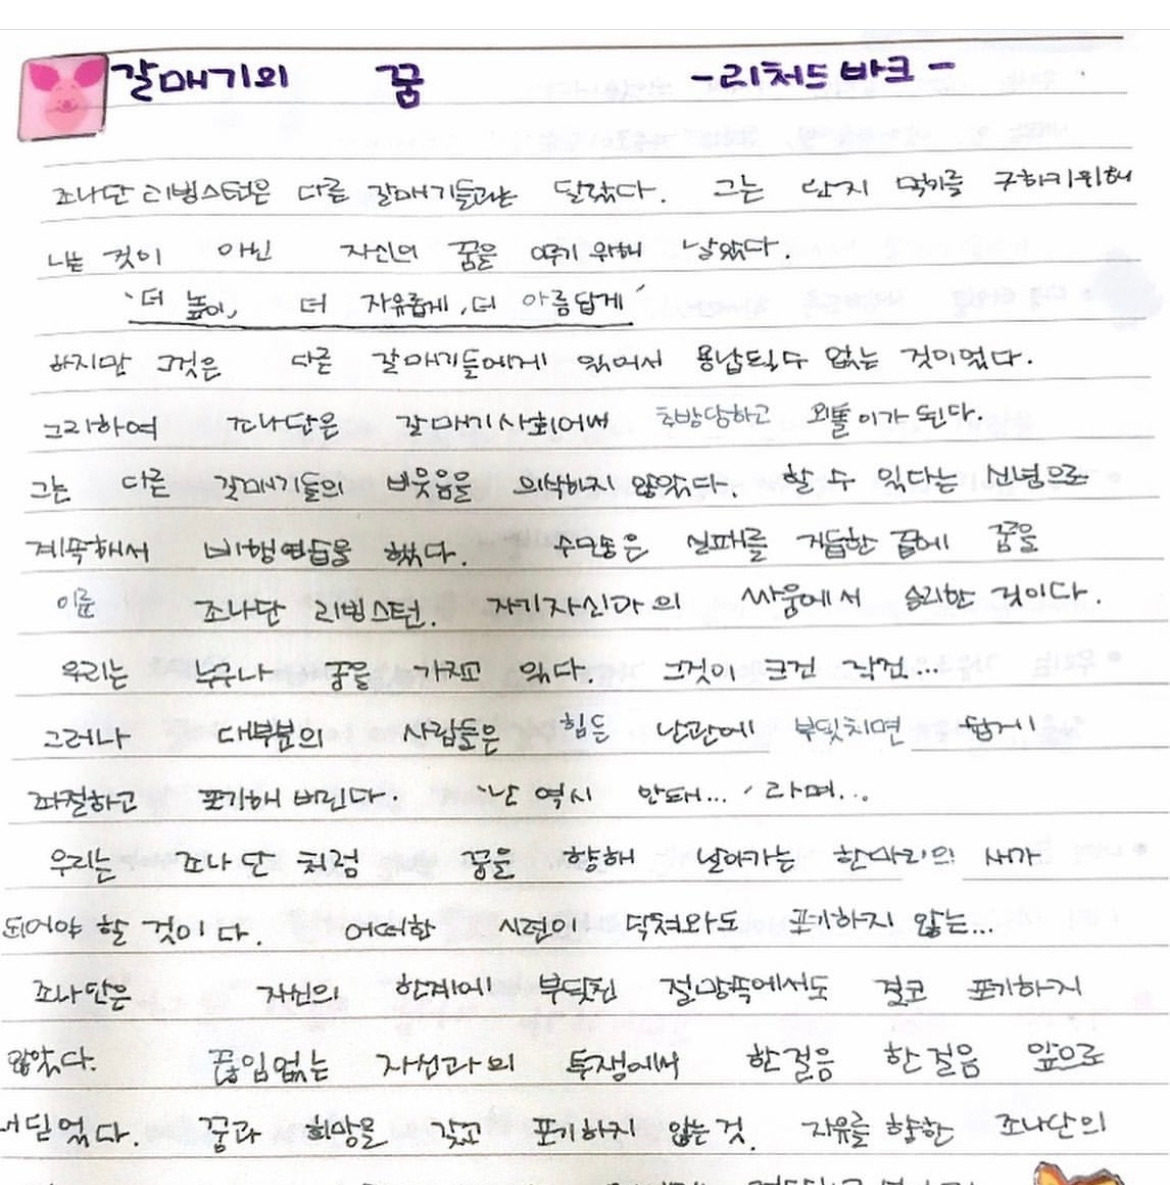 갈매기의 꿈 -리처드 바크-
조나단 리빙스턴은 다른 갈매기들과는 달랐다. 그는 단지 먹이를 구하기위해
나는 것이 아닌 자신의 꿈을 이루기 위해 날았다.
'더 높이, 더 자유롭게, 더 아름답게'
하지만 그것은 다른 갈매기들에게 있어서 용납될수 없는 것이었다.
그리하여 조나단은 갈매기사회에서 추방당하고 외톨이가 된다.
그는 다른 갈매기들의 비웃음을 의식하지 않았다. 할 수 있다는 신념으로
계속해서 비행연습을 했다. 수많은 실패를 거듭한 끝에 꿈을
이룬 조나단 리빙스턴. 자기자신과의 싸움에서 승리한 것이다.
우리는 누구나 꿈을 가지고 있다 그것이 크건 작건...
그러나 대부분의 사람들은 힘든 난관에 부딪치면 쉽게
좌절하고 포기해 버린다. '난 역시 안돼...' 라며...
우리는 조나단 처럼 꿈을 향해 날아가는 한마리의 새가
되어야 할 것이다. 어떠한 시련이 닥쳐와도 포기하지 않는...
조나단은 자신의 한계에 부딪친 절망속에서도 결코 포기하지
않았다. 끊임없는 자신과의 투쟁에서 한걸음 한걸음 앞으로
내딛었다. 꿈과 희망을 갖고 포기하지 않는것. 자유를 향한 조나단의